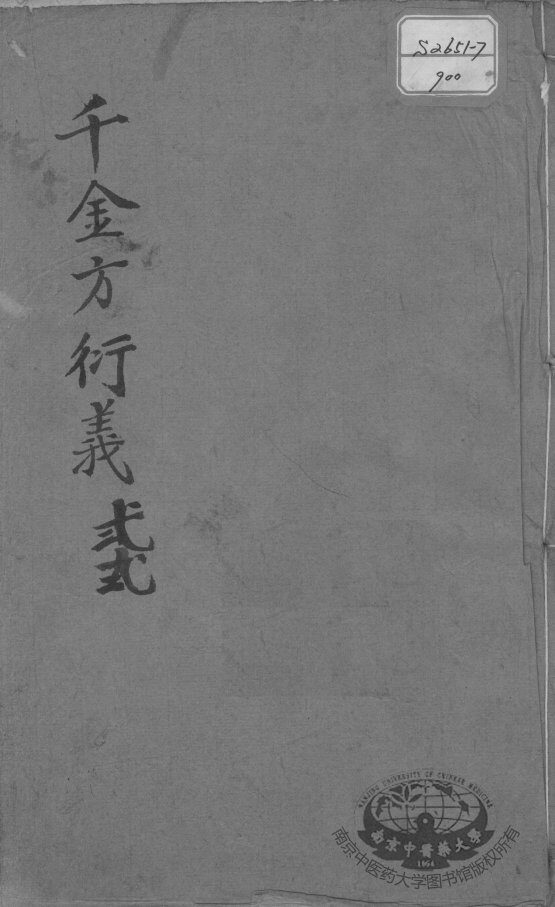 S2651-7
900
千金方衍義
弎弍
NANJING UNIVERSITY OF CHINESE MEDICINE
南京中醫藥大學
1954
南京中医药大学图书馆版权所有